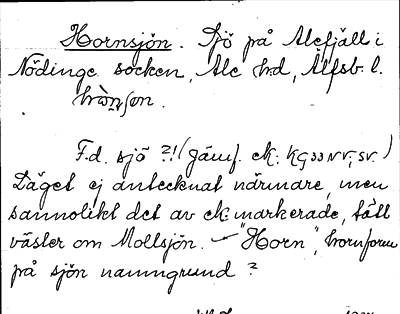 Hornsjön. Sjö på Alefjäll i
Nödinge socken, Ale hrd, Älfsb. l.
hòn̲ʃon.
F.d. sjö ?! (jämf. ek. kg 33 NV, SV.)
Läget ej antecknat närmare, men
sannolikt det av ek. markerade, tätt
väster om Mollsjön. — "Horn", hornform
på sjön namngrund?